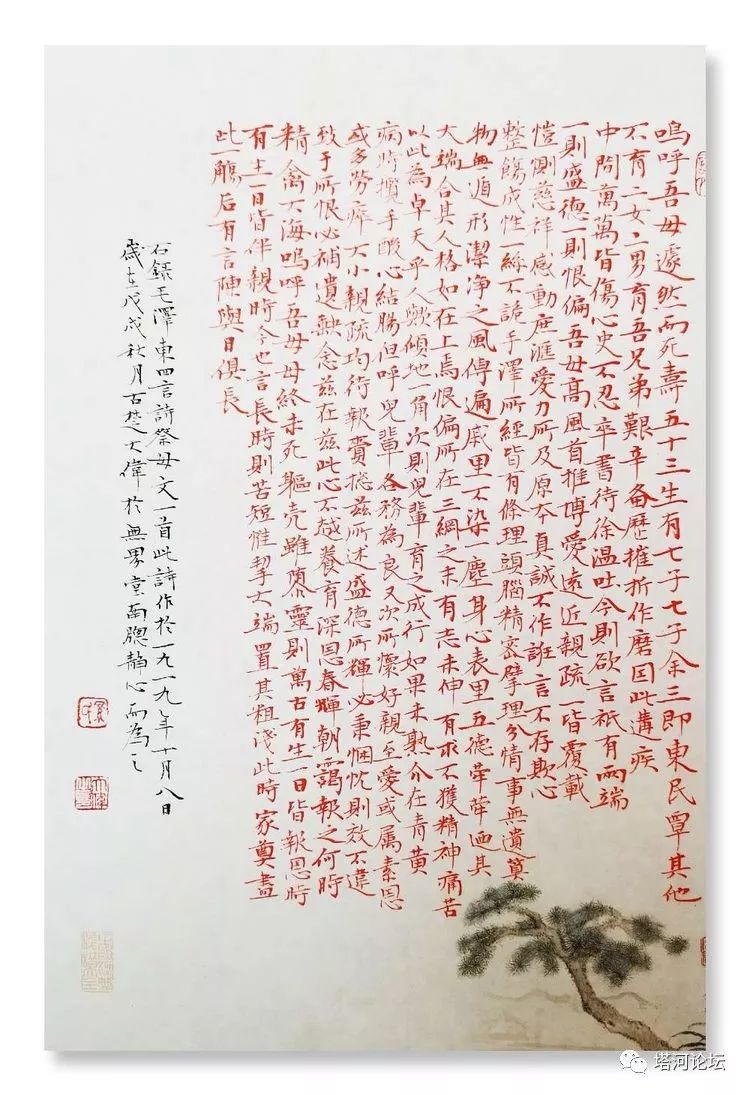 嗚呼吾母遽然而死壽五十三生有七子七子余三即東民覃其他
不育二女二男育吾兄弟艱辛备歷摧折作磨因此遘疾
中間萬萬皆傷心史不忍卒書待徐溫吐今則欲言祇有兩端
一則盛德一則恨偏吾母高風首推博愛遠近親疏一皆覆載
愷惻慈祥感動庶滙愛力所及原本真誠不作誑言不存欺心
整飭成性一絲不詭手澤所經皆有條理頭腦精密擘理分情事無遺算
物無遁形潔净之風傳遍戚里不染一塵身心表里五德犖犖迺其
大端合其人格如在上焉恨偏所在三綱之末有志未伸有求不獲精神痛苦
以此為卓天乎人歟傾地一角次則兒輩育之成行如果未熟介在青黃
病時攬手酸心結腸但呼兒輩各務為良又次所懷好親至愛或属素恩
或多勞瘁大小親疏均待報賚總兹所述盛德所輝必秉悃忱則效不違
致于所恨必補遺缺念兹在兹此心不越養育深恩春暉朝靄報之何時
精禽大海嗚呼吾母母終未死軀壳雖隳靈則萬古有生一日皆報恩時
有生一日皆伴親時今也言長時則苦短惟挈大端置其粗淺此時家奠盡
此一觴后有言陳與日俱長
右錄毛澤東四言詩祭母文一首此詩作於一九一九年十月八日
歲在戊戌秋月古楚大偉於無界堂南牕静心而為之
塔河论坛